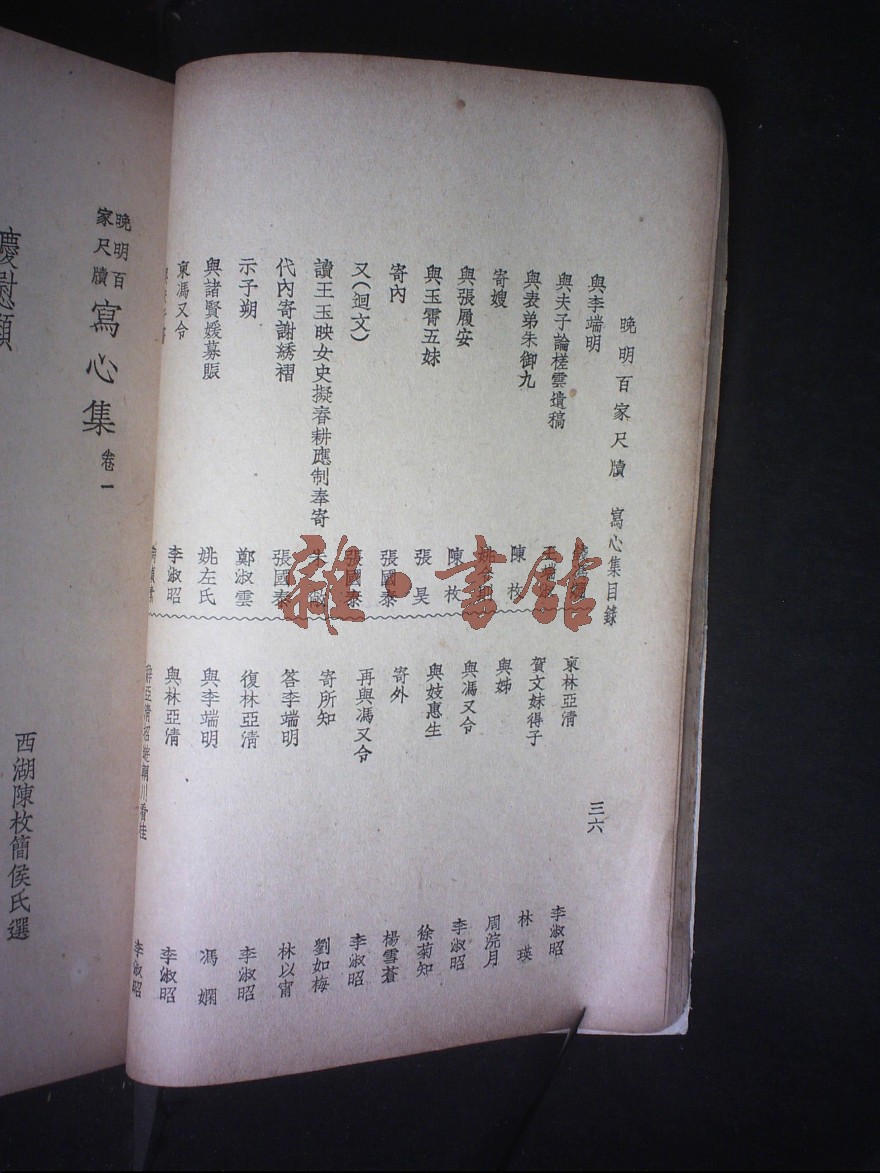 晚明百家尺牘　寫心集目錄
三六
與李端明
與夫子論槎雲遺稿
與表弟朱御九　陳枚
寄嫂
與張履安　陳枚
與玉霄五妹　張昊
寄內　張國泰
又(迴文)　張國泰
讀王玉映女史擬春耕應制奉寄　朱
代內寄謝綉褶　張國泰
示子朔　鄭淑雲
與諸賢媛募賑　姚左氏
柬馮又令　李淑昭
柬林亞清　李淑昭
賀文妹得子　林瑛
與姊　周浣月
與馮又令　李淑昭
與妓惠生　徐菊知
寄外　楊雪蒼
再與馮又令　李淑昭
寄所知　劉如梅
答李端明　林以甯
復林亞清　李淑昭
與李端明　馮嫻
與林亞清　李淑昭
亞清招遊輞川看桂　李淑昭
晚明百家尺牘 寫心集 卷一
西湖陳枚簡侯氏選
慶慰類
雜·書館